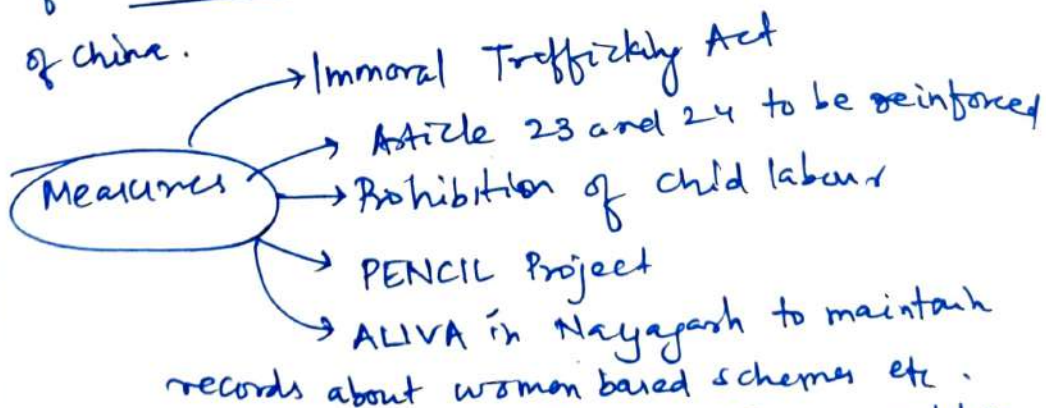 of China.
Immoral Trafficking Act
Article 23 and 24 to be reinforced
Measures
Prohibition of chid labour
PENCIL Project
ALIVA in Nayagarh to maintain
records about women based schemes etc.